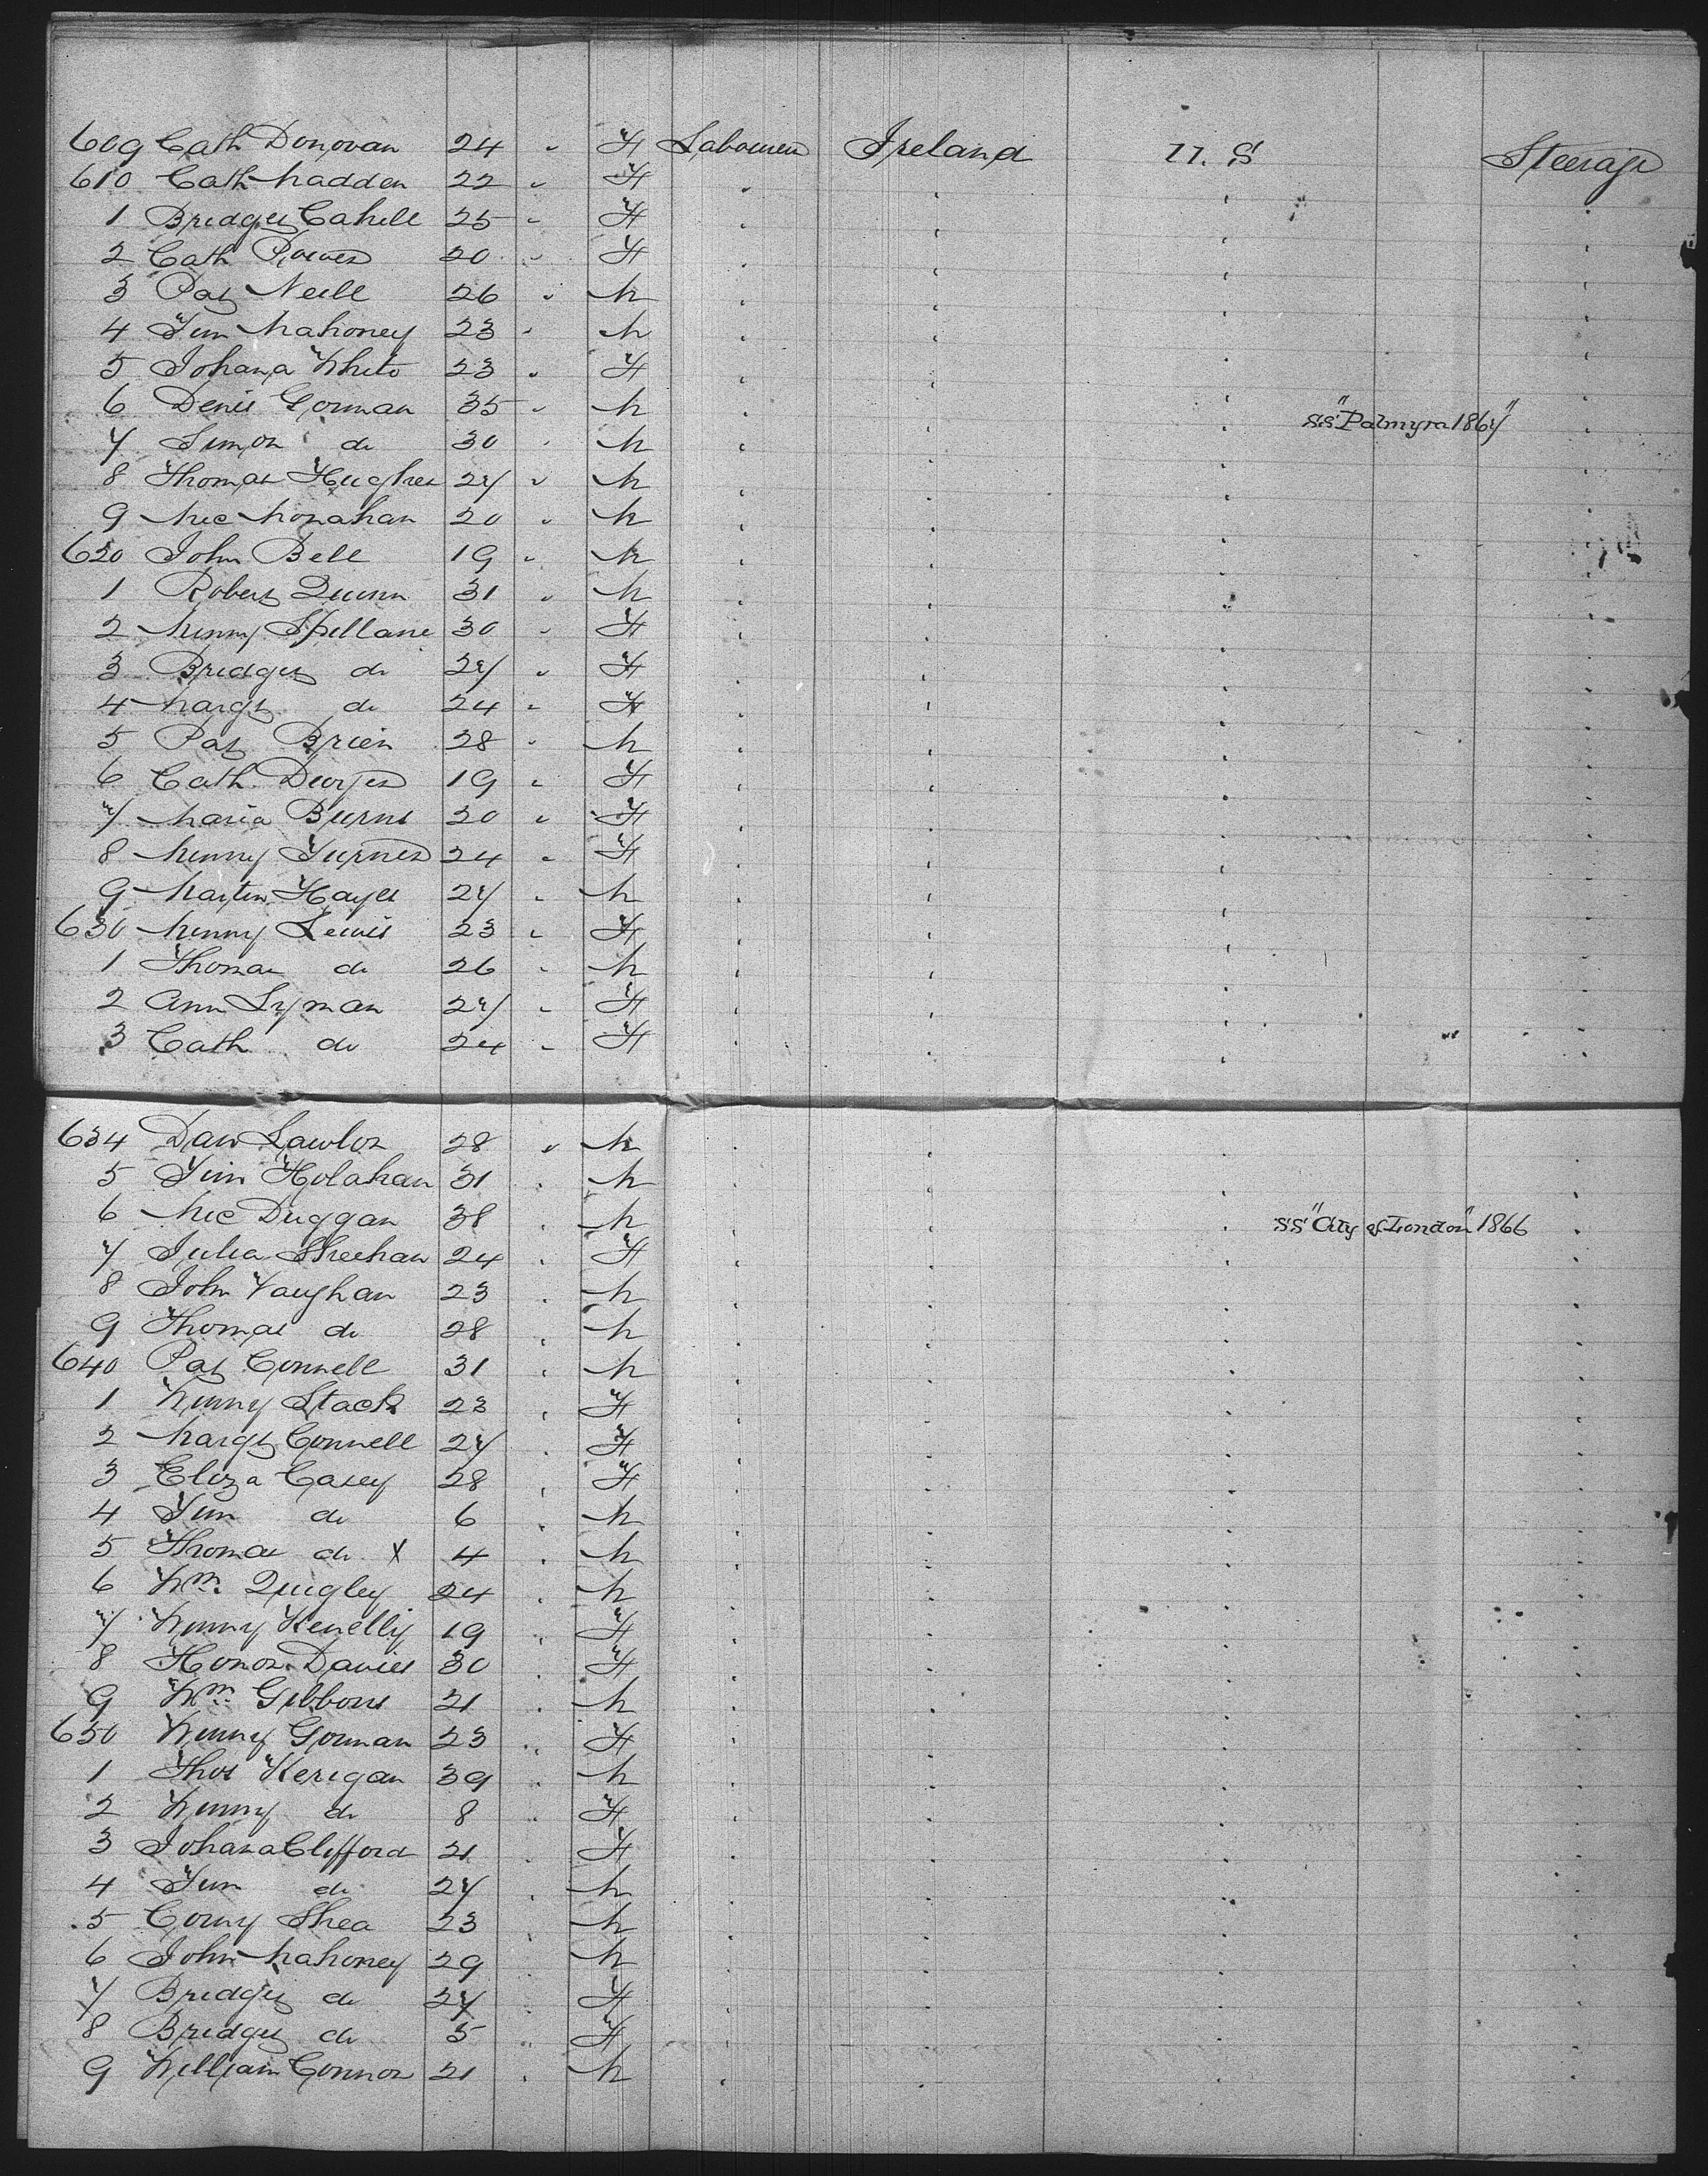 609 Cath Donovan 24 " F Labourer Ireland U. S Steerage
610 Cath Madden 22 " F " " " "
1 Bridget Cahill 25 " F " " " "
2 Cath Power 20 " F " " " "
3 Pat Neill 26 " M " " " "
4 Tim Mahoney 23 " M " " " "
5 Johana White 23 " F " " " "
6 Denis Gorman 35 " M " " " SS "Palmyra 1867" "
7 Simon do 30 " M " " " "
8 Thomas Hughes 27 " M " " " "
9 Mic Monahan 20 " M " " " "
620 John Bell 19 " M " " " "
1 Robert Quinn 31 " M " " " "
2 Minny Spillane 30 " F " " " "
3 Bridget do 27 " F " " " "
4 Margt do 24 " F " " " "
5 Pat Brien 28 " M " " " "
6 Cath 19 " F " " " "
7 Maria Burns 20 " F " " " "
8 Minny 24 " F " " " "
9 Martin Hayes 27 " M " " " "
630 Minny Lewis 23 " F " " " "
1 Thomas do 26 " M " " " "
2 Ann Lyman 27 " F " " " "
3 Cath do 24 " F " " " "
634 Dan Lawlor 28 " M " " " "
5 Tim Holahan 31 " M " " " "
6 Mic Duggan 38 " M " " " SS "City of London" 1866 "
7 Julia Sheehan 24 " F " " " "
8 John Vaughan 23 " M " " " "
9 Thomas do 28 " M " " " "
640 Pat Connell 31 " M " " " "
1 Winny Stack 23 " F " " " "
2 Margt Connell 27 " F " " " "
3 Eliza Casey 28 " F " " " "
4 Tim do 6 " M " " " "
5 Thomas do X 4 " M " " " "
6 Wm. Quigley 24 " M " " " "
7 Winny Kenelly 19 " F " " " "
8 Honor Davies 30 " F " " " "
9 Wm. Gibbons 21 " M " " " "
650 Winny Gorman 23 " F " " " "
1 Thos Kerigan 39 " M " " " "
2 Winny do 8 " F " " " "
3 Johana Clifford 21 " F " " " "
4 Tim do 27 " M " " " "
5 Corny Shea 23 " M " " " "
6 John Mahoney 29 " M " " " "
7 Bridget do 27 " F " " " "
8 Bridget do 5 " F " " " "
9 William Connor 21 " M " " " "